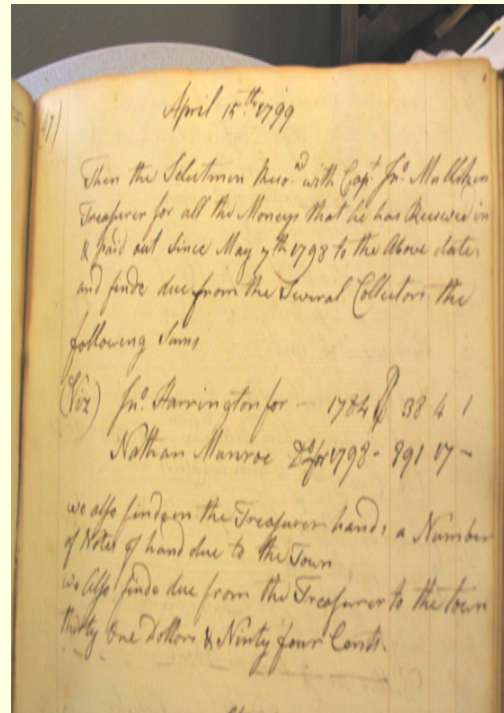 17)
April 15th 1799
Then the Selectmen Reco.nd with Capt Jno. Mulliken
Treasurer for all the Moneys that he has Received in
& paid out Since May 7th 1798 to the Above date,
and finde due from the Several Collectors the
following Sums
(Viz) Jno. Harrington for — 1784 38 4 1
Nathan Munroe Do for 1798 - 891 17 —
we also finde in the Treasurer hands a Number
of Notes of hand due to the Town
we Also finde due from the Treasurer to the town
thirty One Dollars & Ninty four Cents.